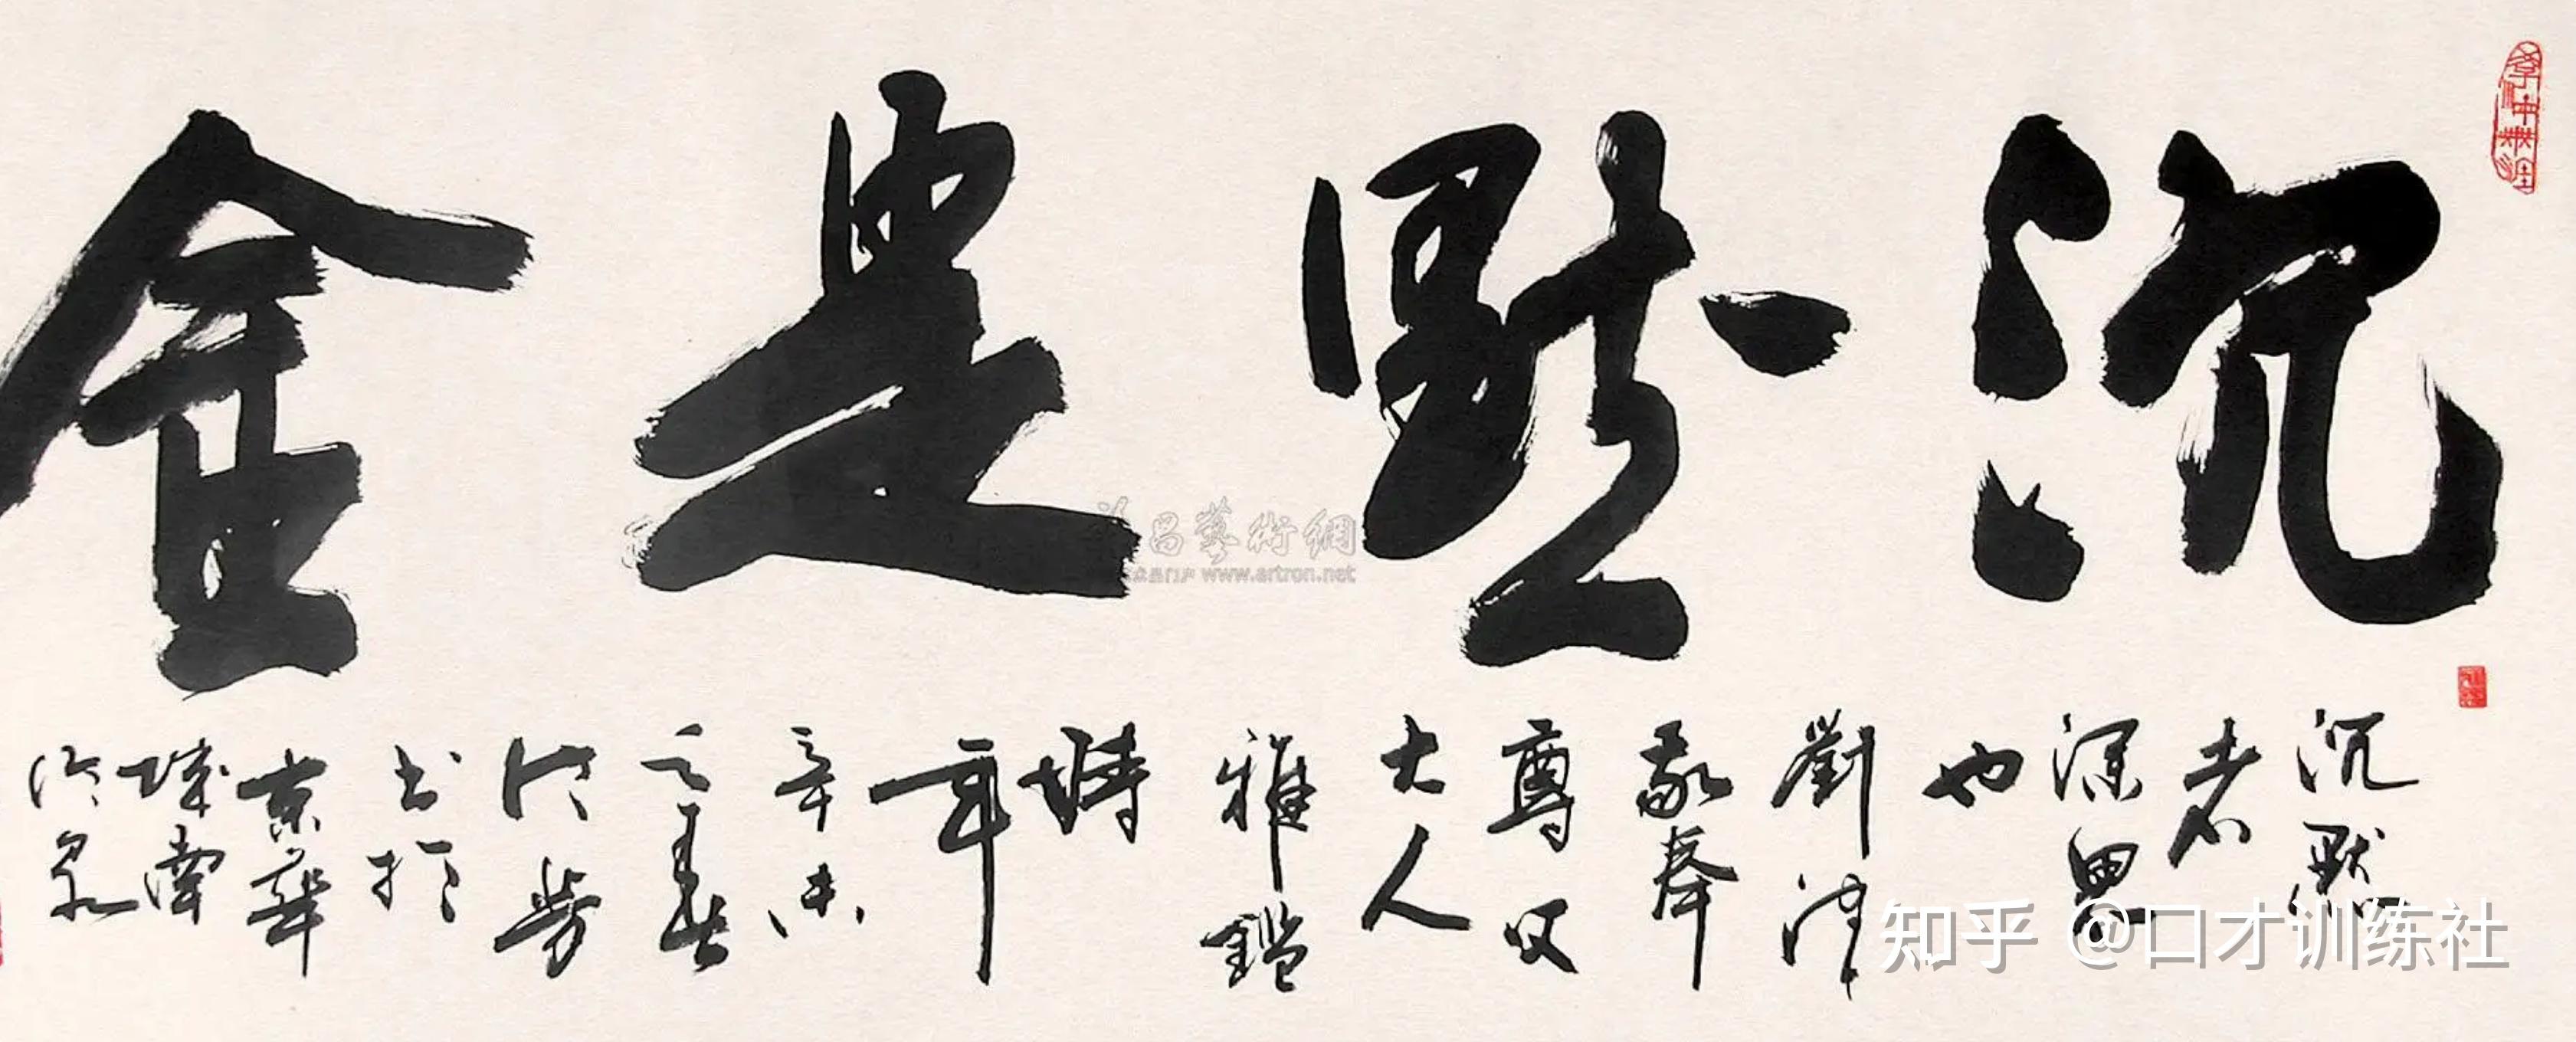 沉默是金
沉默
者
深思
也
劉澤
敬奉
尊父
大人
雅鑑
時
年
辛未
之春
書於
京華
城南
雅昌藝術網
www.artron.net
知乎 @口才训练社